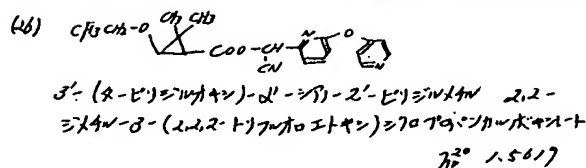 (26)
CF3CH2-O CH3 CH3
COO-CH
CN
N
O
N
3'-(4-ピリジルオキシ)-α'-シアノ-2'-ピリジルメチル 2,2-
ジメチル-3-(2,2,2-トリフルオロエトキシ)シクロプロパンカルボキシレート
1.5617